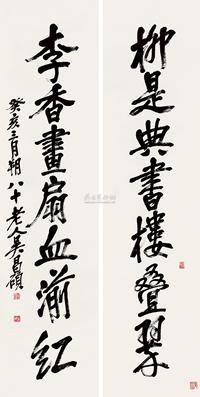 柳是典书樓叠翠
李香畫扇血湔紅
癸亥三月朔八十老人吴昌碩